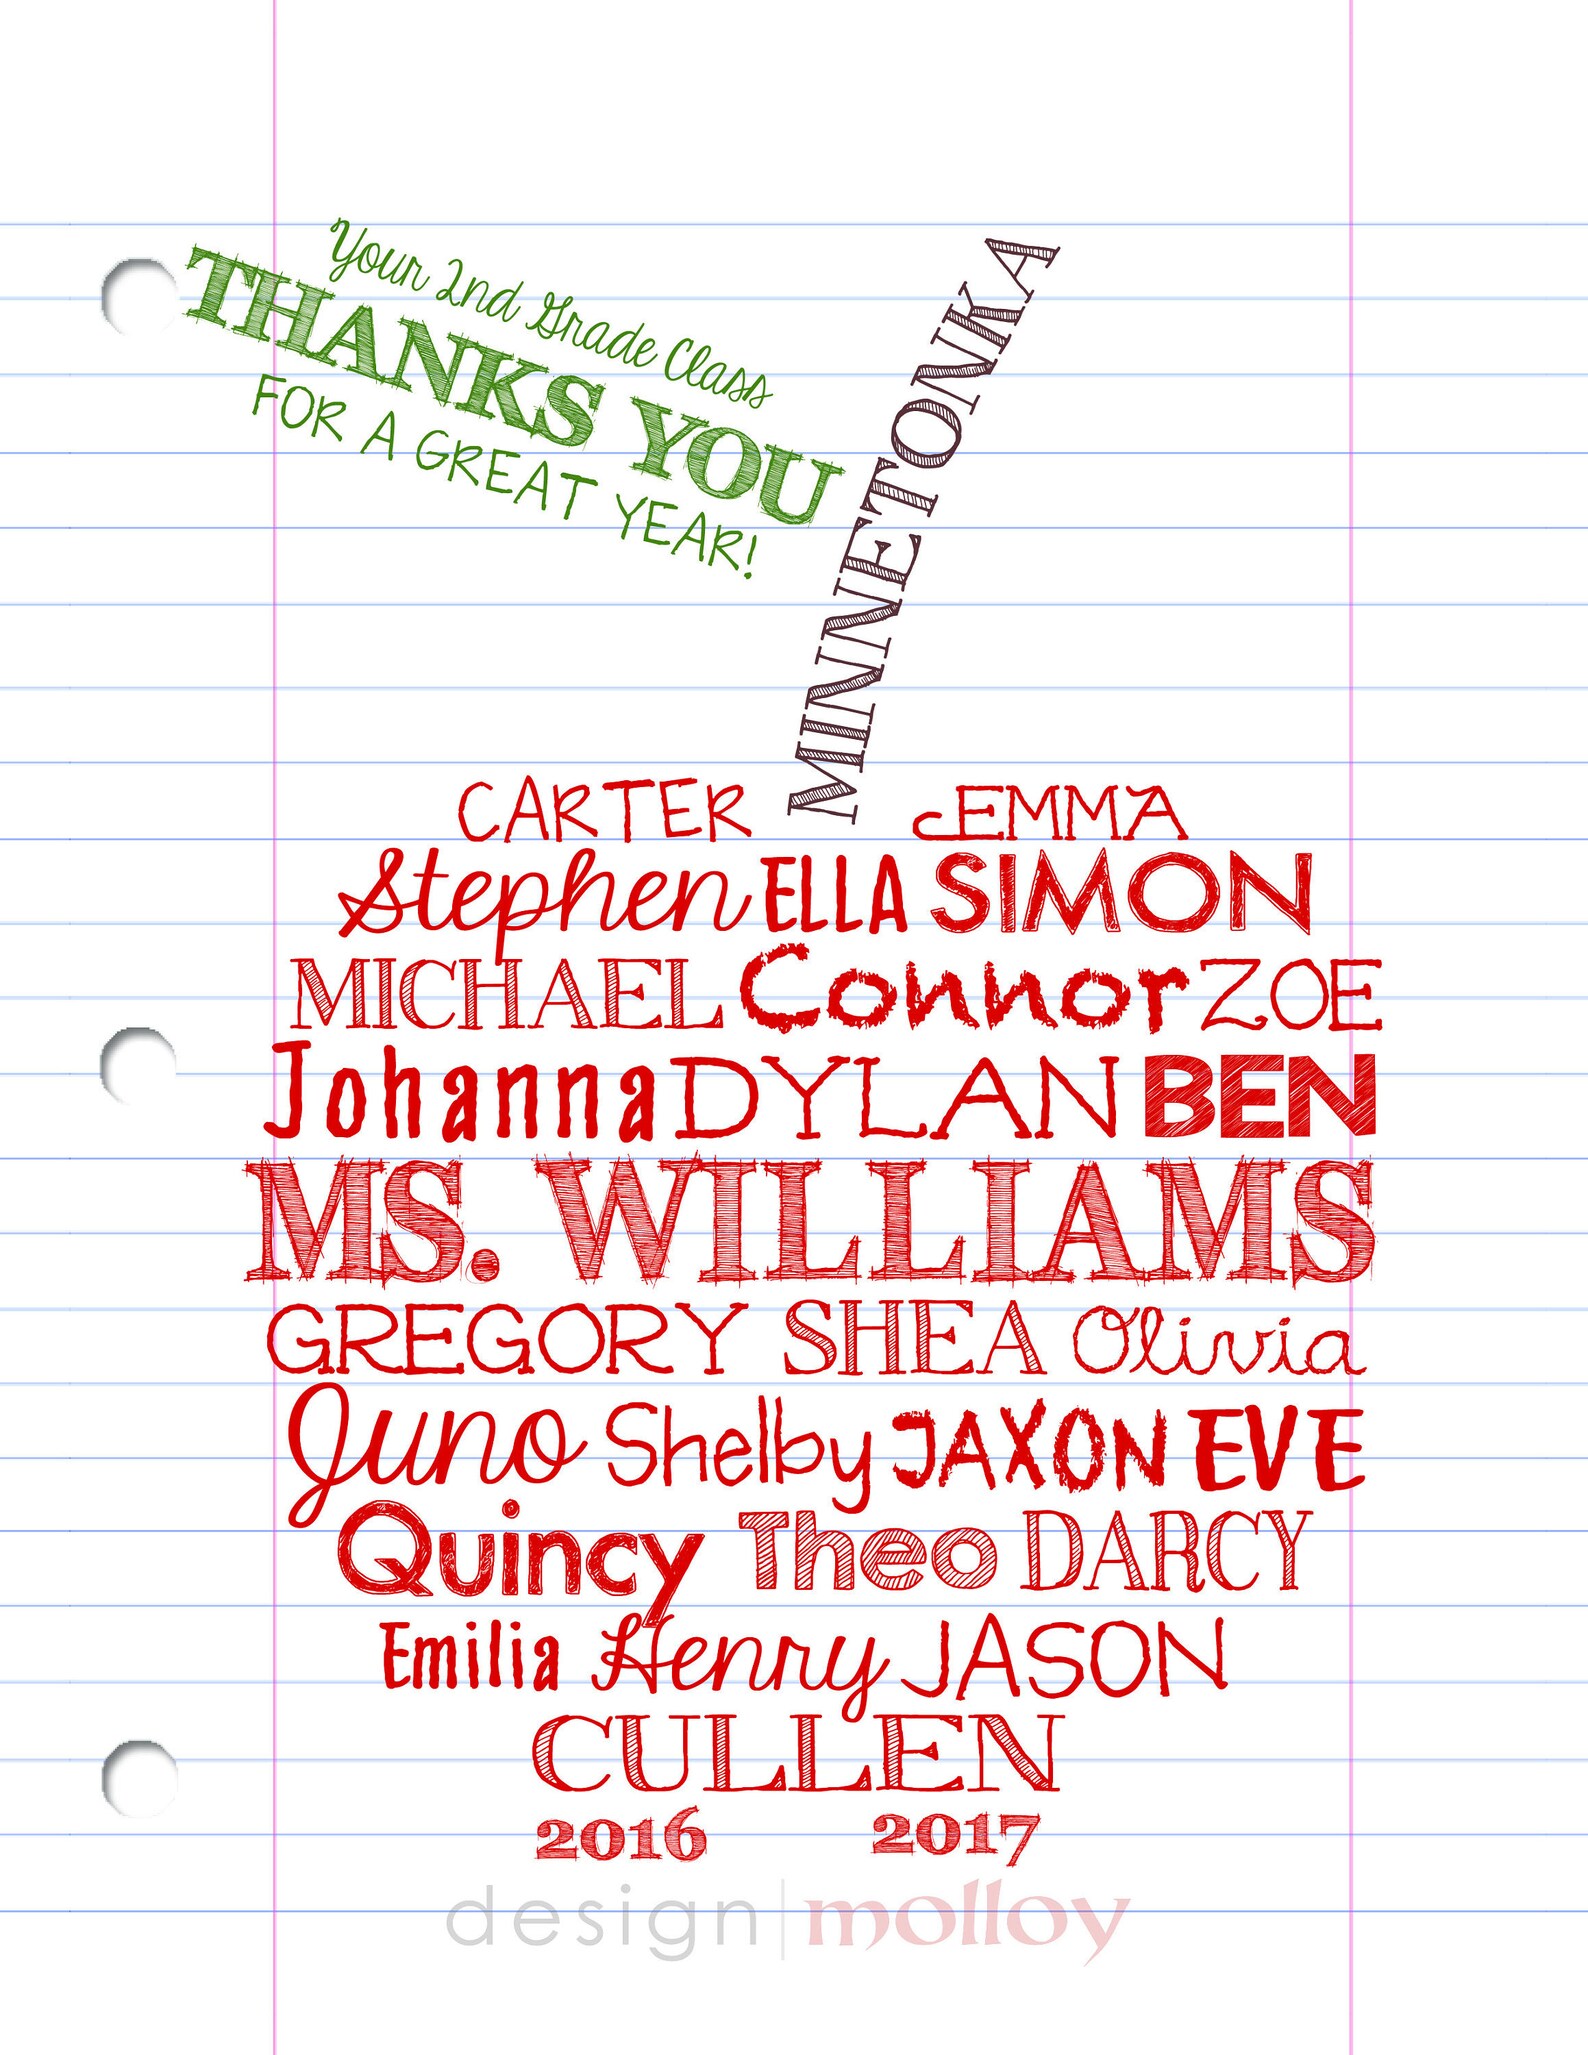 Your 2nd Grade Class
THANKS YOU
FOR A GREAT YEAR!
MINNETONKA
CARTER EMMA
Stephen ELLA SIMON
MICHAEL Connor ZOE
Johanna DYLAN BEN
MS. WILLIAMS
GREGORY SHEA Olivia
Juno Shelby JAXON EVE
Quincy Theo DARCY
Emilia Henry JASON
CULLEN
2016 2017
design | molloy